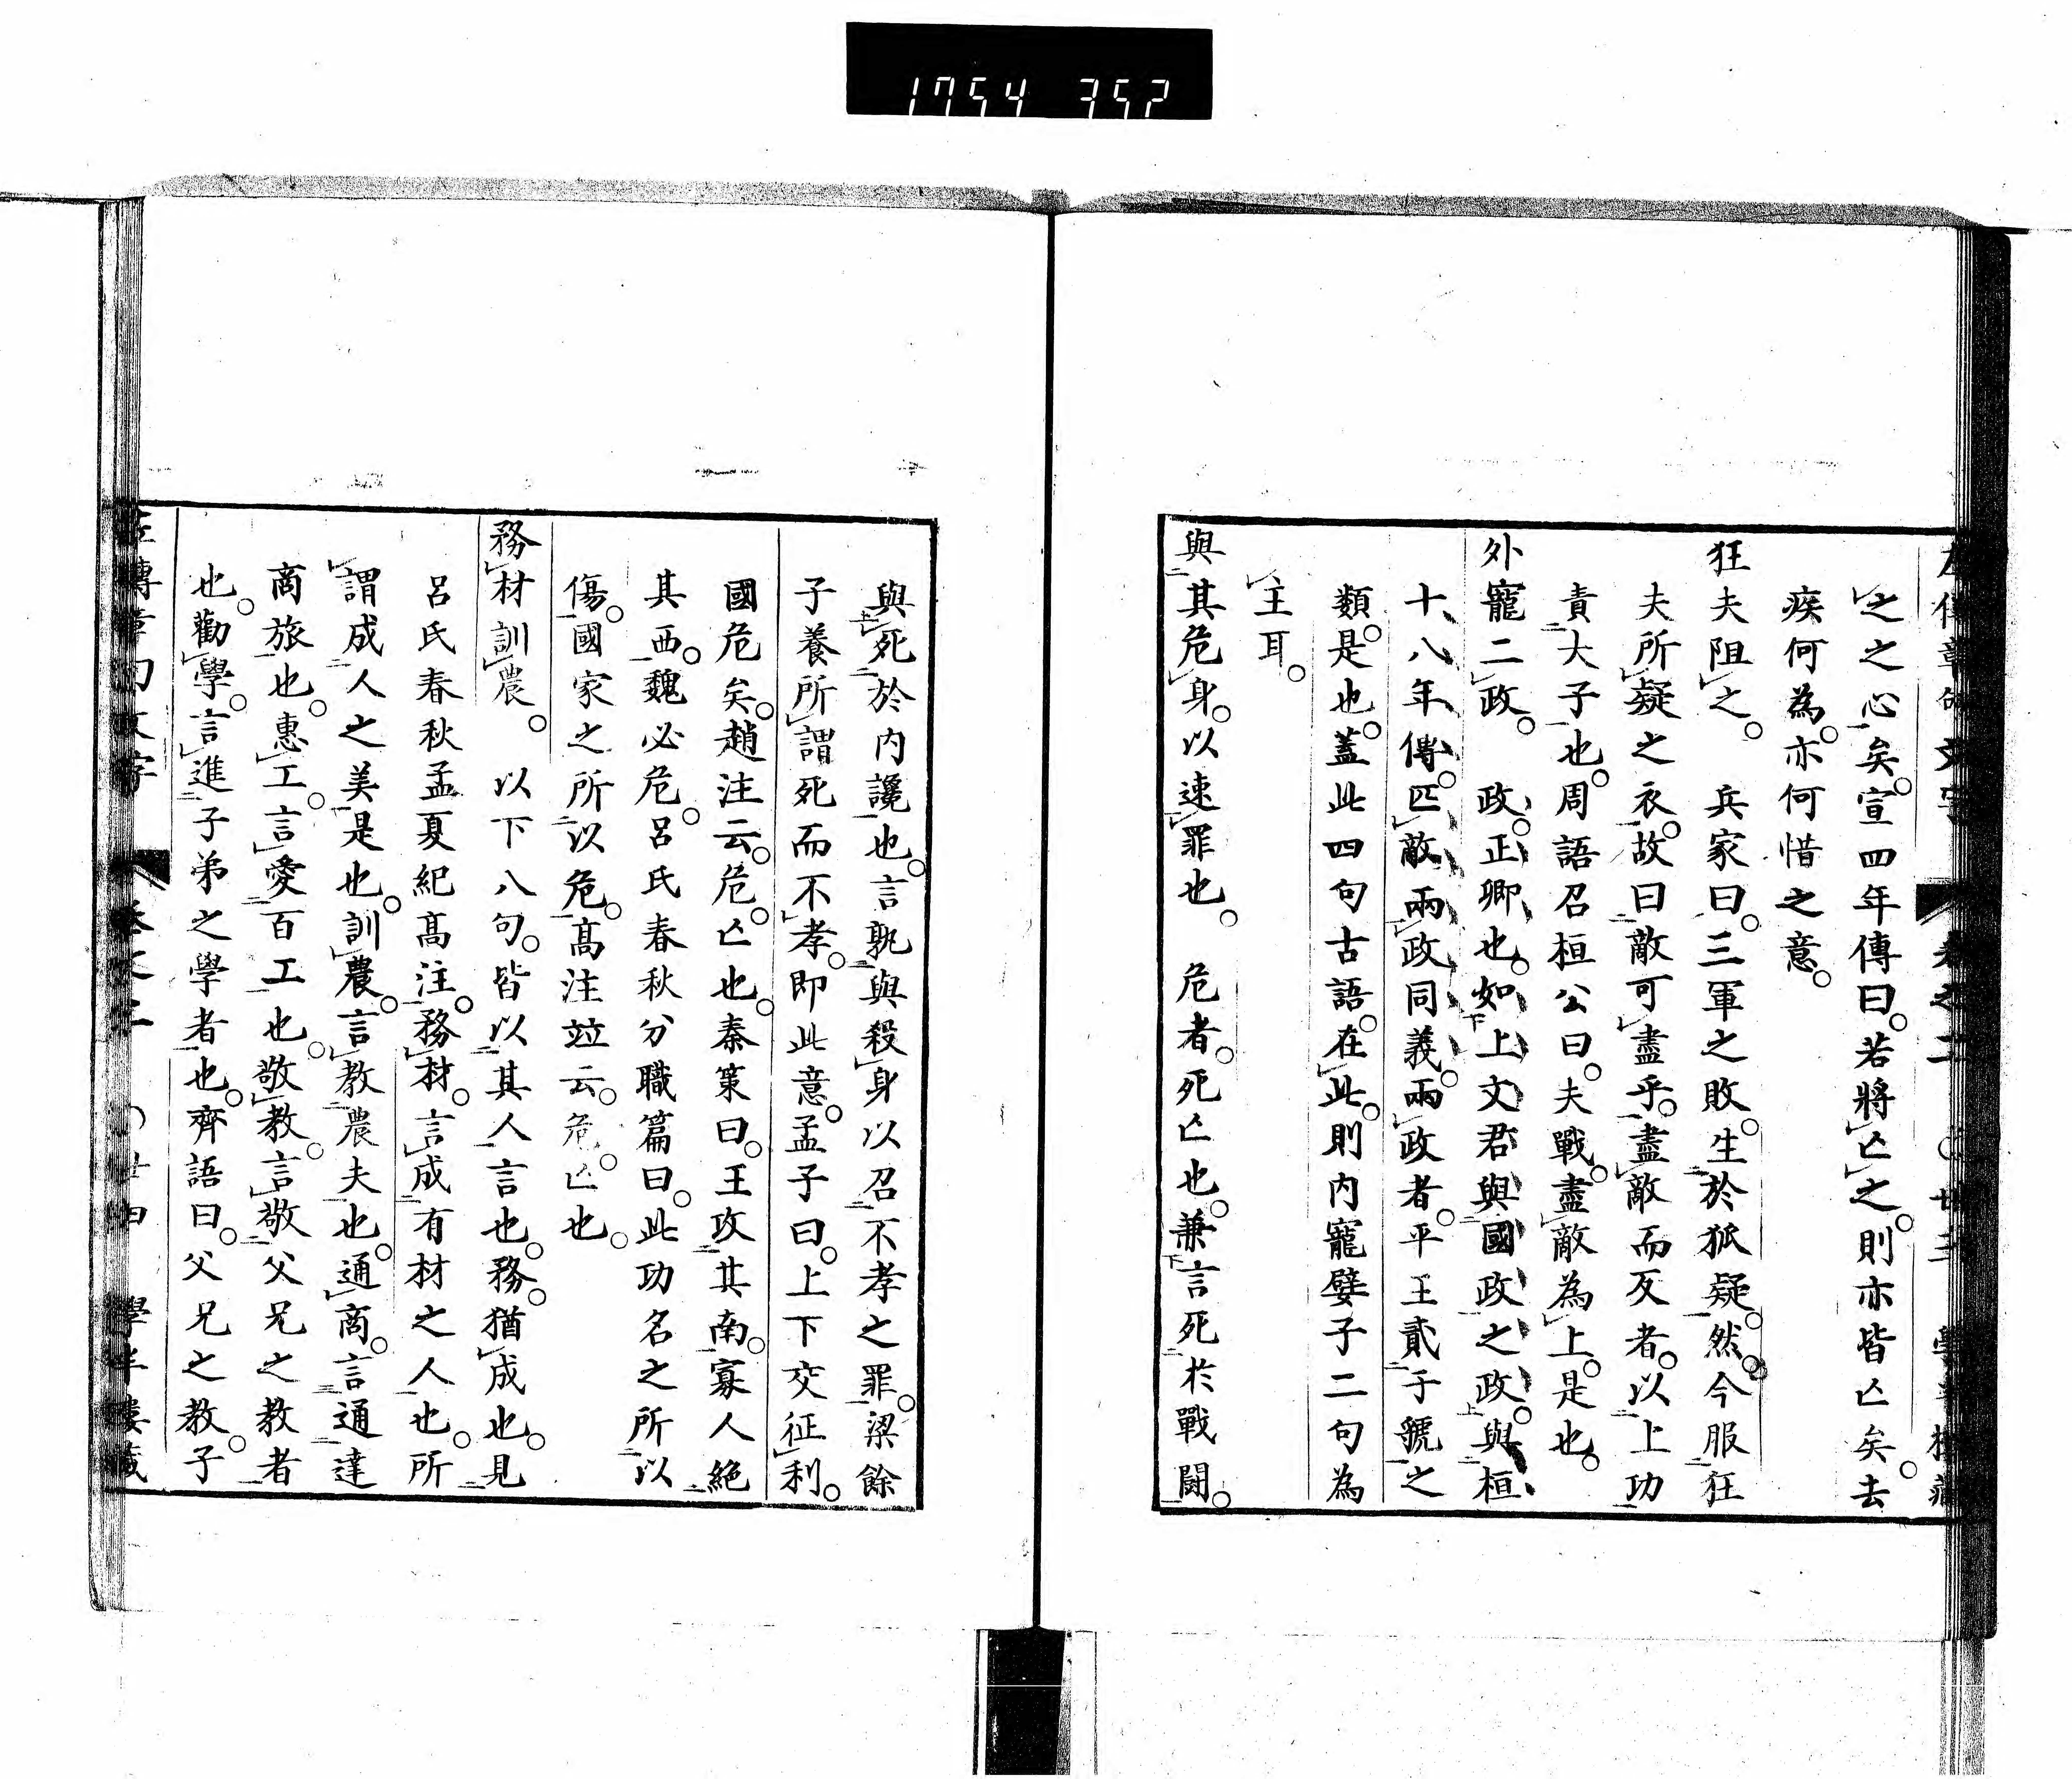 1754 352
之之心矣。宣四年傳曰。若將亡之。則亦皆亡矣。去
疾何為。亦何惜之意。
狂夫阻之。 兵家曰。三軍之敗。生於狐疑。然今服狂
夫所疑之衣。故曰敵可盡乎。盡敵而反者。以上功
責大子也。周語召桓公曰。夫戰。盡敵為上。是也。
外寵二政。 政。正卿也。如上文君與國政之政。與桓
十八年傳。匹敵兩政同義。兩政者。平王貳于虢之
類。是也。蓋此四句古語。在此。則内寵嬖子二句為
主耳。
與其危身。以速罪也。 危者。死亡也。兼言死於戰鬪。
與死於内讒也。言孰與殺身以召不孝之罪。梁餘
子養所謂死而不孝。即此意。孟子曰。上下交征利。
國危矣。趙注云。危。亡也。秦策曰。王攻其南。寡人絶
其西。魏必危。呂氏春秋分職篇曰。此功名之所以
傷。國家之所以危。高注竝云。危。亡也。
務材訓農。 以下八句。皆以其人言也。務。猶成也。見
呂氏春秋孟夏紀高注。務材。言成有材之人也。所
謂成人之美是也。訓農。言教農夫也。通商。言通達
商旅也。惠工。言愛百工也。敬教。言敬父兄之教者
也。勸學。言進子弟之學者也。齊語曰。父兄之教。子